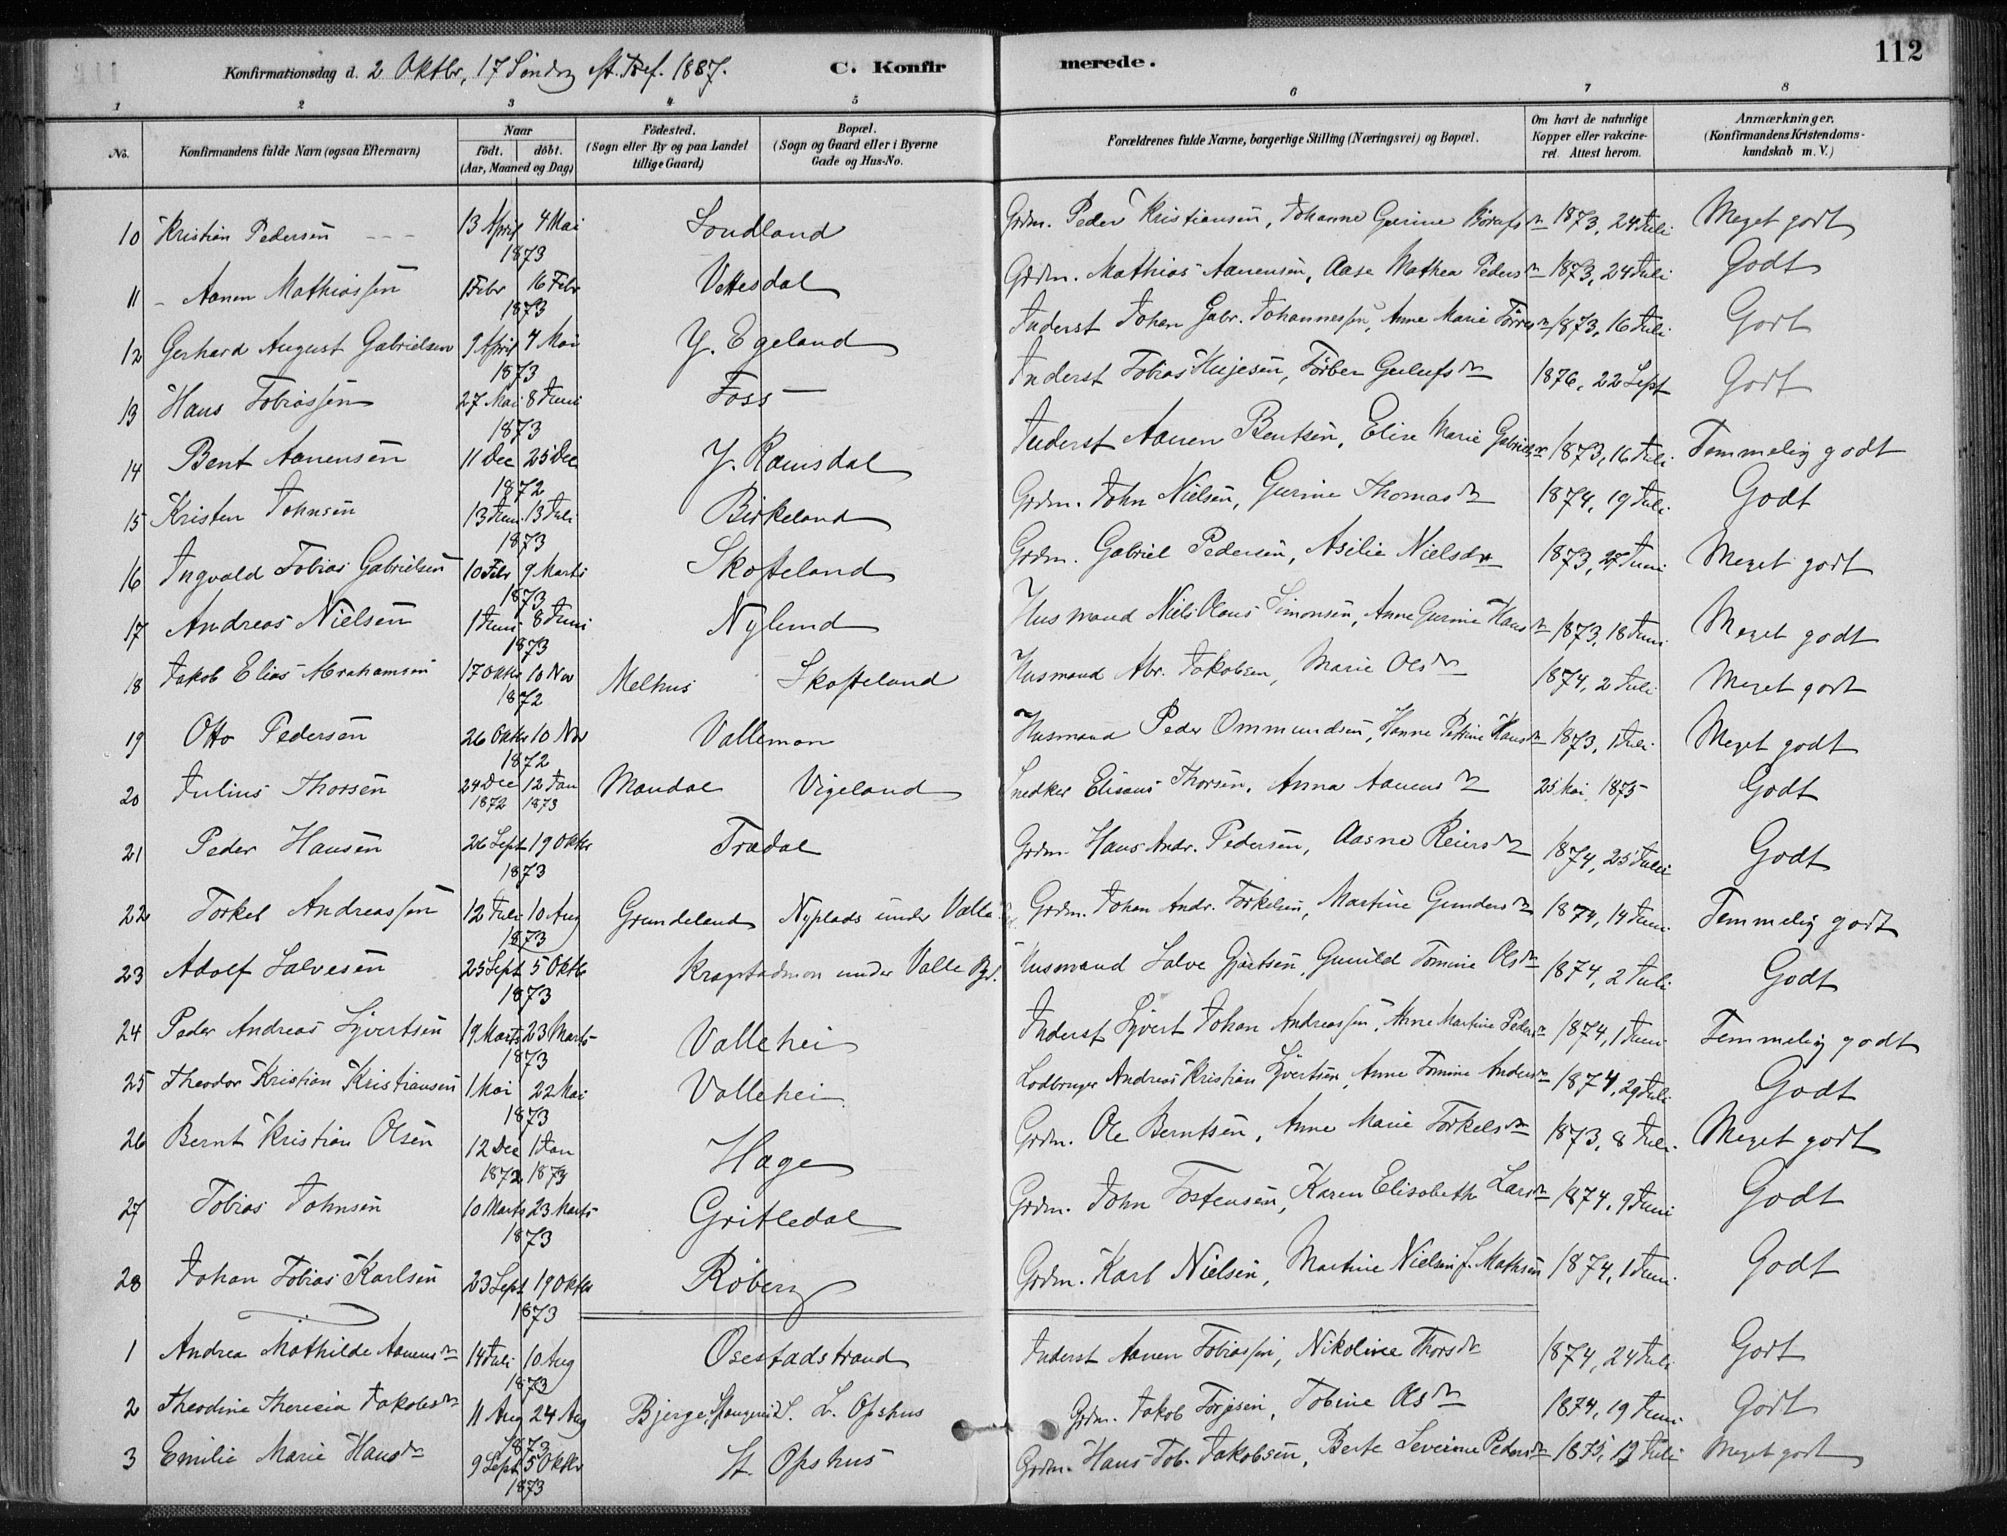 112
Konfirmationsdag d. 2 Oktbr, 17 Søndag eft. Tref. 1887.
C. Konfirmerede.
1 2 3 4 5 6 7 8
No.
Konfirmandens fulde Navn (ogsaa Efternavn)
Naar
födt. döbt.
(Aar, Maaned og Dag)
Födested.
(Sogn eller By og paa Landet
tillige Gaard)
Bopæl.
(Sogn og Gaard eller i Byerne
Gade og Hus-No.
Forældrenes fulde Navne, borgerlige Stilling (Næringsvei) og Bopæl.
Om havt de naturlige
Kopper eller vakcine-
ret. Attest herom.
Anmærkninger.
(Konfirmandens Kristendoms-
kundskab m. V.)
10 Kristian Pedersen 13 April 4 Mai 1873 Loudland Grdm. Peder Kristiansen, Johanne Gurine 1873, 24 Juli Meget godt
11 Aanen Mathiassen 1 Febr 16 Febr 1873 Vettesdal Grdm. Mathias Aanensen, Aase Mathea Pedersdtr 1873, 24 Juli Godt
12 Gerhard August Gabrielsen 9 April 4 Mai 1873 Y. Egeland Inderst Johan Gabr. Johannessen, Anne Marie 1873, 16 Juli Godt
13 Hans Tobiassen 27 Mai 8 Juni 1873 Foss Inderst Tobias 1876, 22 Sept Godt
14 Bent Aanensen 11 Dec 25 Dec 1872 Y. Ramsdal Inderst Aanen Bentsen, Elise Marie Gabrielsdtr 1873, 16 Juli Temmelig godt
15 Kristen Johnsen 13 Juni 13 Juli 1873 Birkeland Grdm. John Nielsen, Gurine Thomasdtr 1874, 19 Juli Godt
16 Ingvald Tobias Gabrielsen 10 Febr 9 Marts 1873 Skofteland Grdm. Gabriel Pedersen, Asilie Nielsdtr 1873, 27 Juni Meget godt
17 Andreas Nielsen 1 Juni 8 Juni 1873 Nylund Husmand Niels Olaus Simonsen, Anne Gurine Hansdtr 1873, 18 Juni Meget godt
18 Jakob Elias Abrahamsen 17 Oktbr 10 Nov 1872 Melhus Skofteland Husmand Abr. Jakobsen, Marie Olsdtr 1874, 2 Juli Meget godt
19 Otto Pedersen 26 Oktbr 10 Nov 1872 Vallemon Husmand Peder Ommundsen, Hanne Petrine Hansdtr 1873, 1 Juli Meget godt
20 Julius Thorsen 24 Dec 1872 12 Jan 1873 Mandal Vigeland Snedker Elisæus Thorsen, Anna Aanensdtr 25 Mai 1875 Godt
21 Peder Hansen 26 Sept 19 Oktbr 1873 Trædal Grdm. Hans Andr. Pedersen, Aasne Reiersdtr 1874, 25 Juli Godt
22 Torkel Andreassen 12 Juli 10 Aug 1873 Grundeland Nyplads under Valle Grdm. Johan Andr. Torkelsen, Martine Gundersdtr 1874, 14 Juni Temmelig godt
23 Adolf Salvesen 25 Sept 5 Oktbr 1873 Kragstadmon under Valle Bgd. Husmand Salve Gjertsen, Gunild Tomine Olsdtr 1874, 2 Juli Godt
24 Peder Andreas Syvertsen 19 Marts 23 Marts 1873 Vallehei Inderst Syvert Johan Andreassen, Anne Martine Pedersdtr 1874, 1 Juni Temmelig godt
25 Theodor Kristian Kristiansen 1 Mai 22 Mai 1873 Vallehei Lodbruger Andreas Kristian Syvertsen, Anne Tomine Andersdtr 1874, 29 Juli Godt
26 Bernt Kristian Olsen 12 Dec 1872 1 Jan 1873 Hage Grdm. Ole Berntsen, Anne Marie Torkelsdtr 1873, 8 Jul. Meget godt
27 Tobias Johnsen 10 Marts 23 Marts 1873 Gritledal Grdm. John Tostensen, Karen Elisabeth Larsdtr 1874, 9 Juni Godt
28 Johan Tobias Karlsen 23 Sept 19 Oktbr 1873 Röberg Grdm. Karl Nielsen, Martine Nielsen f. Mathisen 1874, 1 Juni Godt
1 Andrea Mathilde Aanensdtr 14 Juli 10 Aug 1873 Osestadstrand Inderst Aanen Tobiassen, Nikoline Thorsdtr 1874, 24 Juli Godt
2 Theodine Theresia Jakobsdtr 11 Aug 24 Aug 1873 Bjerge, L. Opshus Grdm. Jakob Torjesen, Tobine Olsdtr 1874, 19 Juni Godt
3 Emilie Marie Hansdtr 9 Sept 5 Oktbr 1873 St. Opshus Grdm. Hans Tob. Jakobsen, Berte Severine Pedersdtr 1875, 19 Juli Meget godt